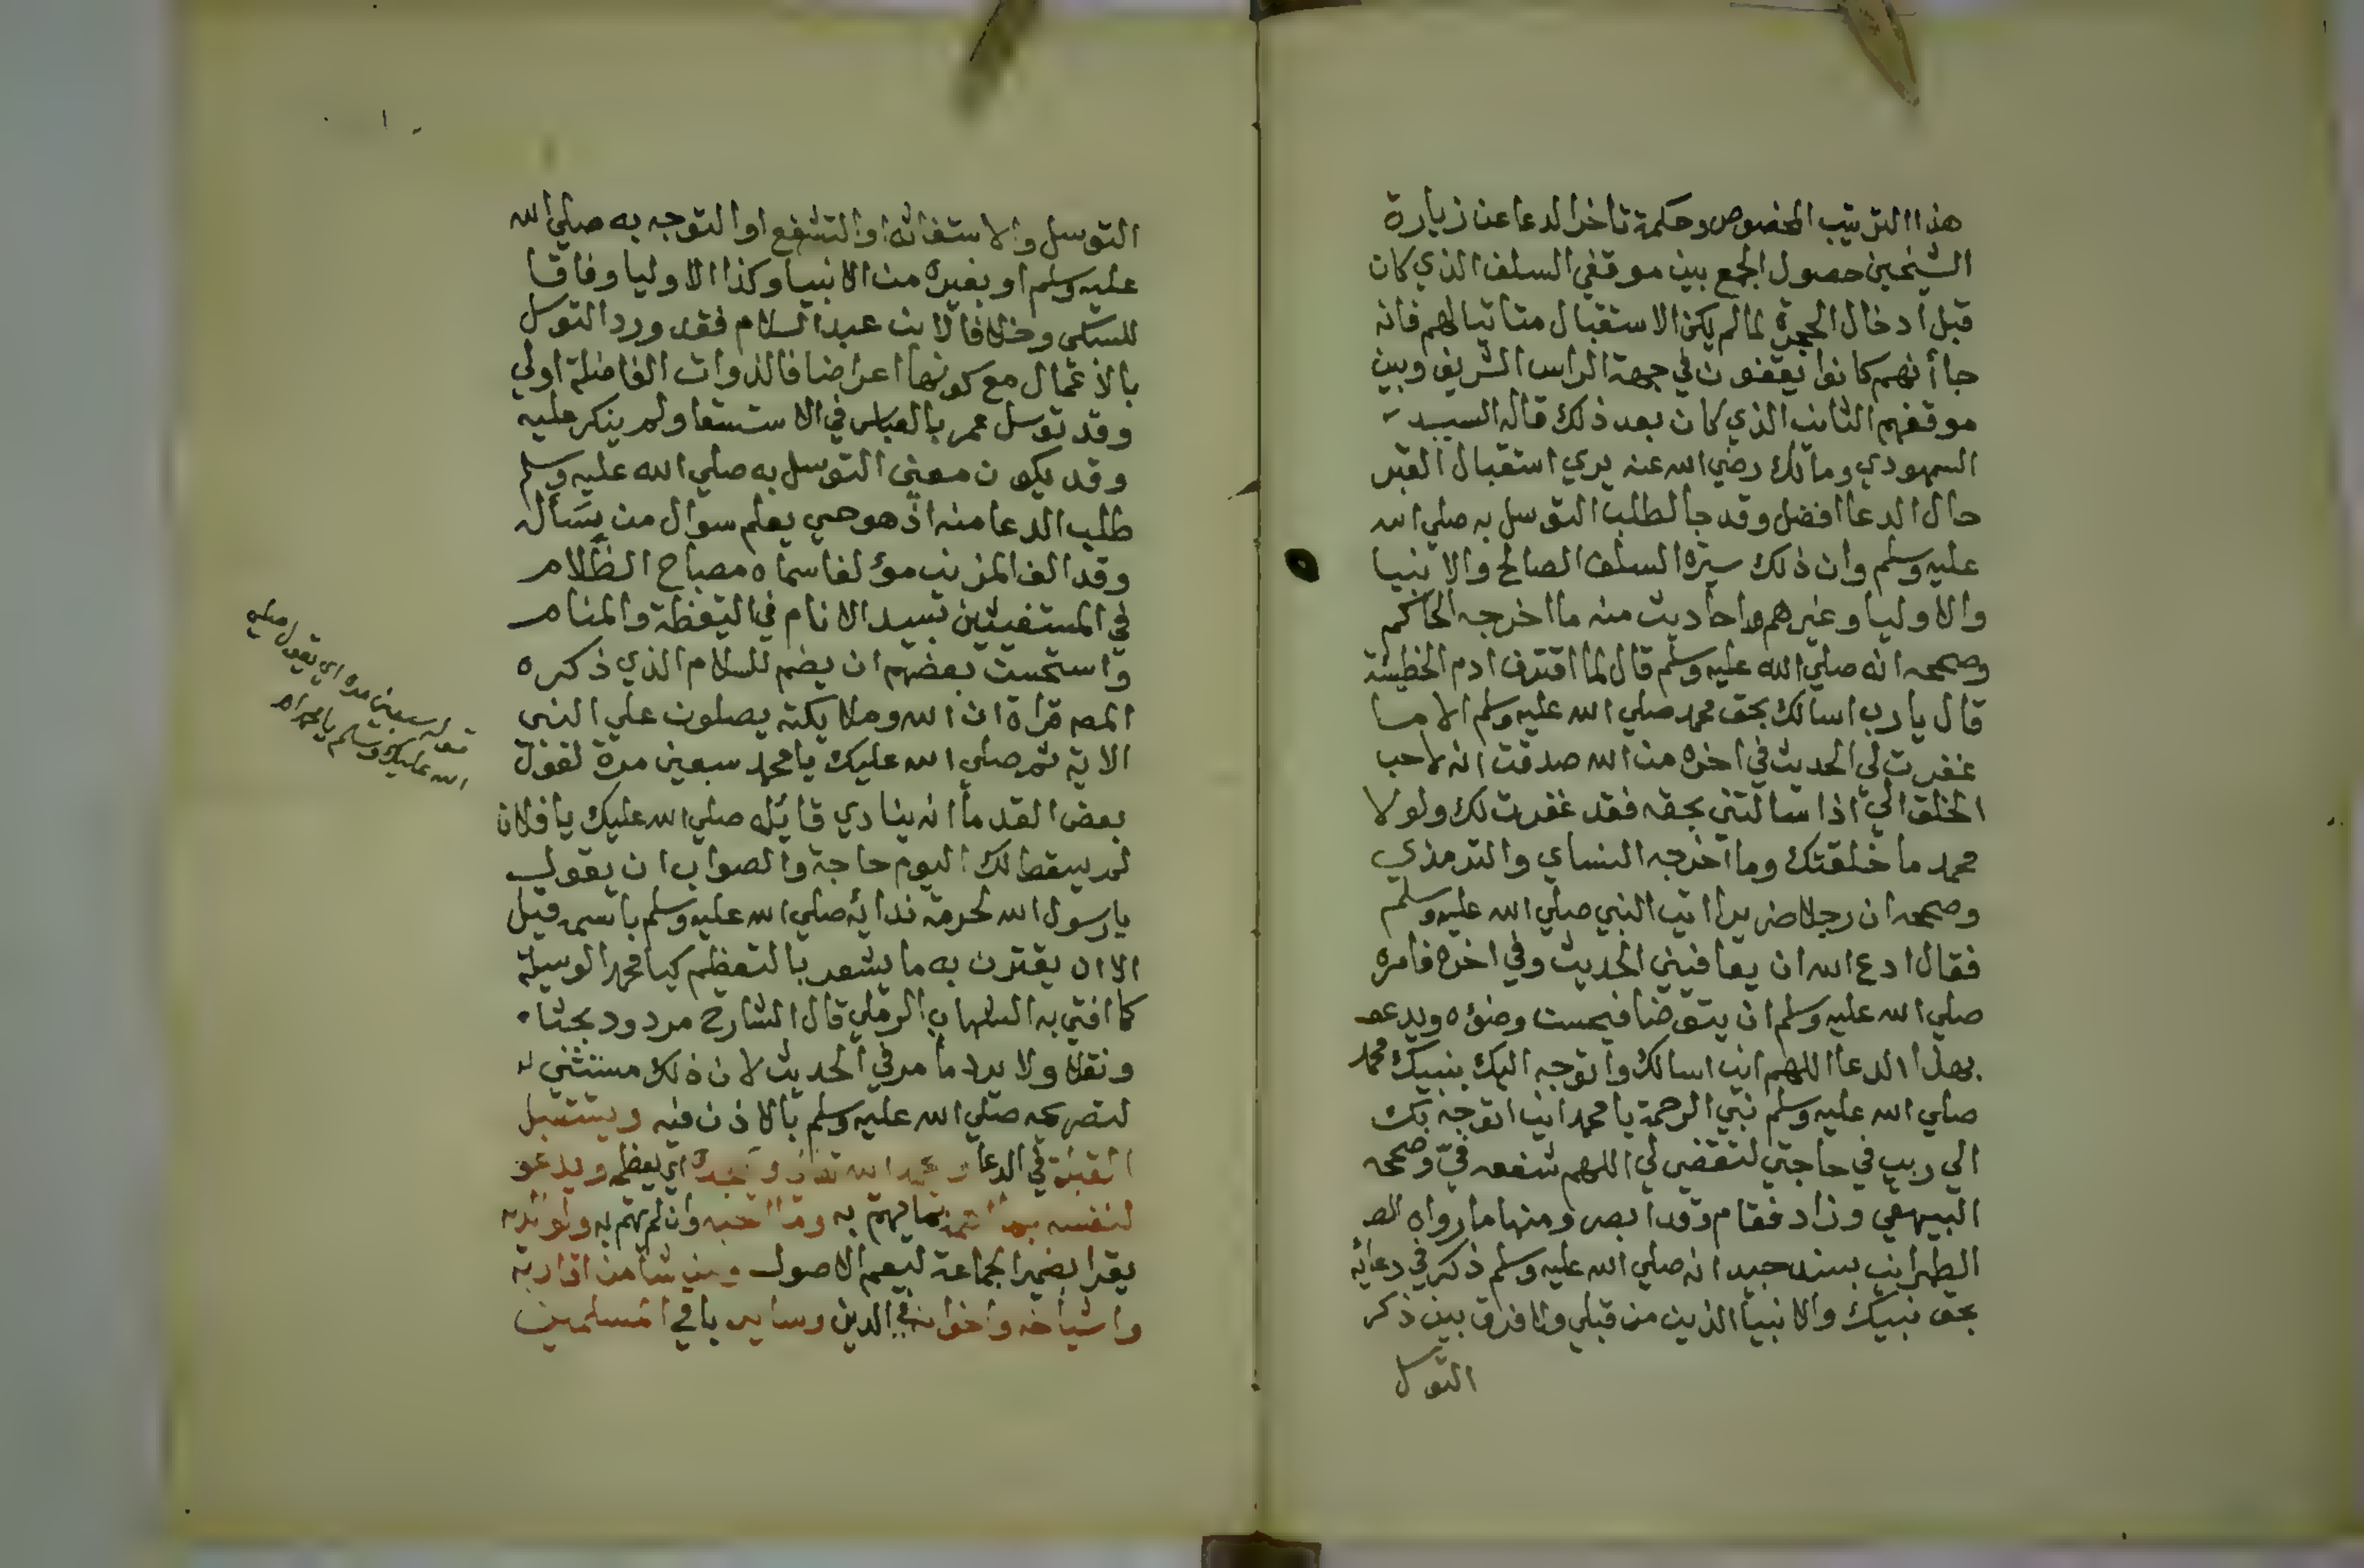 هذا الترتيب المخصوص وحكمة تاخر الدعا عن زيارة
الشيخين حصول الجمع بين موقفي السلف الذي كان
قبل ادخال الحجرة لما لم يكن الاستقبال متاتيا لهم فانه
جا أنهم كانوا يقفون في جهة الراس الشريف وبين
موقفهم الثاني الذي كان بعد ذلك قاله السيد
السمهودي ومالك رضي الله عنه يري استقبال القبر
حال الدعا افضل وقد جا لطلب التوسل به صلي الله
عليه وسلم وان ذلك سيرة السلف الصالح والانبيا
والاوليا وغيرهم احاديث منه ما اخرجه الحاكم
وصححه انه صلي الله عليه وسلم قال لما اقترف ادم الخطيئة
قال يا رب اسالك بحق محمد صلي الله عليه وسلم الا ما
غفرت لي الحديث في اخره من الله صدقت انه لاحب
الخلق الي اذا سالتني بحقه فقد غفرت لك ولولا
محمد ما خلقتك وما اخرجه النساي والترمذي
وصححه ان رجلا ضريرا اتي النبي صلي الله عليه وسلم
فقال ادع الله ان يعافيني الحديث وفي اخره فامره
صلي الله عليه وسلم ان يتوضا فيحسن وضؤه ويدعو
بهذا الدعا اللهم اني اسالك واتوجه اليك بنبيك محمد
صلي الله عليه وسلم نبي الرحمة يا محمد اني اتوجه بك
الي ربي في حاجتي لتقضي لي اللهم شفعه فيّ وصححه
البيهقي وزاد فقام وقد ابصر ومنها ما رواه
الطبراني بسند جيد انه صلي الله عليه وسلم ذكر في دعائه
بحق نبيك والانبيا الذين من قبلي ولا فرق بين ذكر
التوسل
التوسل والاستغاثة او التشفع او التوجه به صلي الله
عليه وسلم او بغيره من الانبيا وكذا الاوليا وفاقا
للسبكي وخلافا لابن عبد السلام فقد ورد التوسل
بالأعمال مع كونها اعراضا فالذوات الفاضلة اولي
وقد توسل عمر بالعباس في الاستسقا ولم ينكر عليه
وقد يكون معني التوسل به صلي الله عليه وسلم
طلب الدعا منه اذ هو حي يعلم سوال من يسأله
وقد الف المزني مؤلفا سماه مصباح الظلام
في المستغيثين بسيد الانام في اليقظة والمنام
واستحسن بعضهم ان يضم للسلام الذي ذكره
المص قراة ان الله وملايكته يصلون علي النبي
الاية ثم صلي الله عليك يا محمد سبعين مرة لقول
بعض القدما انه ينادي قائله صلي الله عليك يا فلان
لم يسقط لك اليوم حاجة والصواب ان يقول
يا رسول الله لحرمة ندائه صلي الله عليه وسلم باسمه قيل
الا ان يقترن به ما يشعر بالتعظيم كيا محمد الوسيلة
كما افتي به الشهاب الرملي قال الشارح مردود بحثا
ونقلا ولا يرد ما مر في الحديث لان ذلك مستثني
لتصريحه صلي الله عليه وسلم بالاذن فيه ويستقبل
القبلة في الدعا ويحمد الله تعالي ويمجده اي يعظمه ويدعو
لنفسه بما يهتم به وما احبه وان لم يهتم به ولوالديه
يقرا بضمير الجماعة ليعم الاصول ومن شا من اقاربه
واشياخه واخوانه في الدين وساير باقي المسلمين
قوله سبعين مرة اي يقول صلي
الله عليك وسلم يا محمد اه